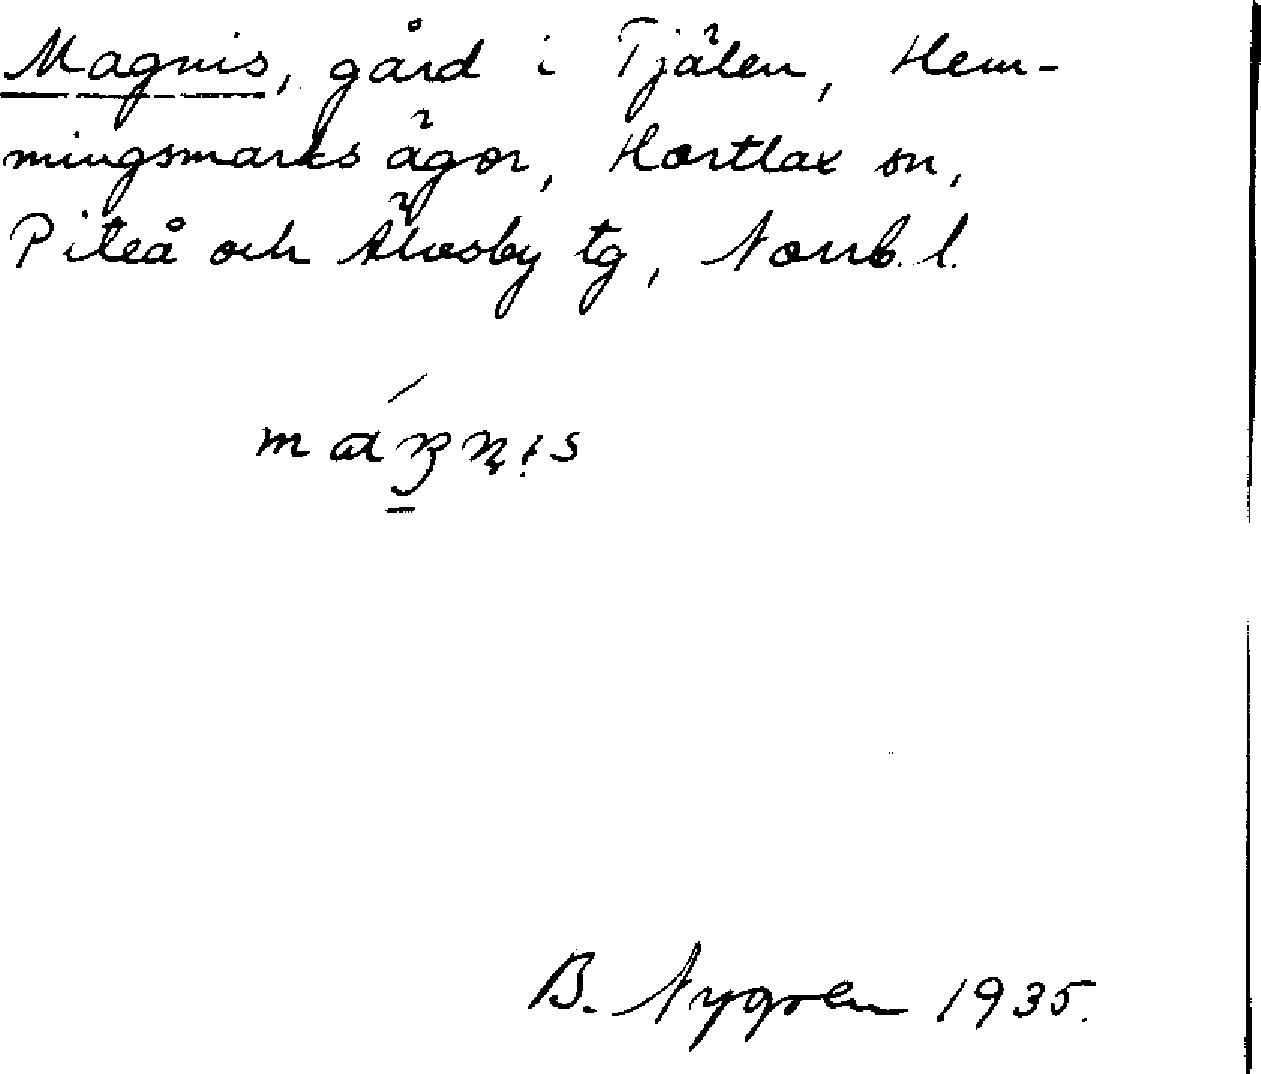 Magnis, gård i Tjälen, Hem-
mingsmarks ägor, Hortlax sn,
Piteå och Älvsby tg, Norrb. l.
B. Nygren 1935.